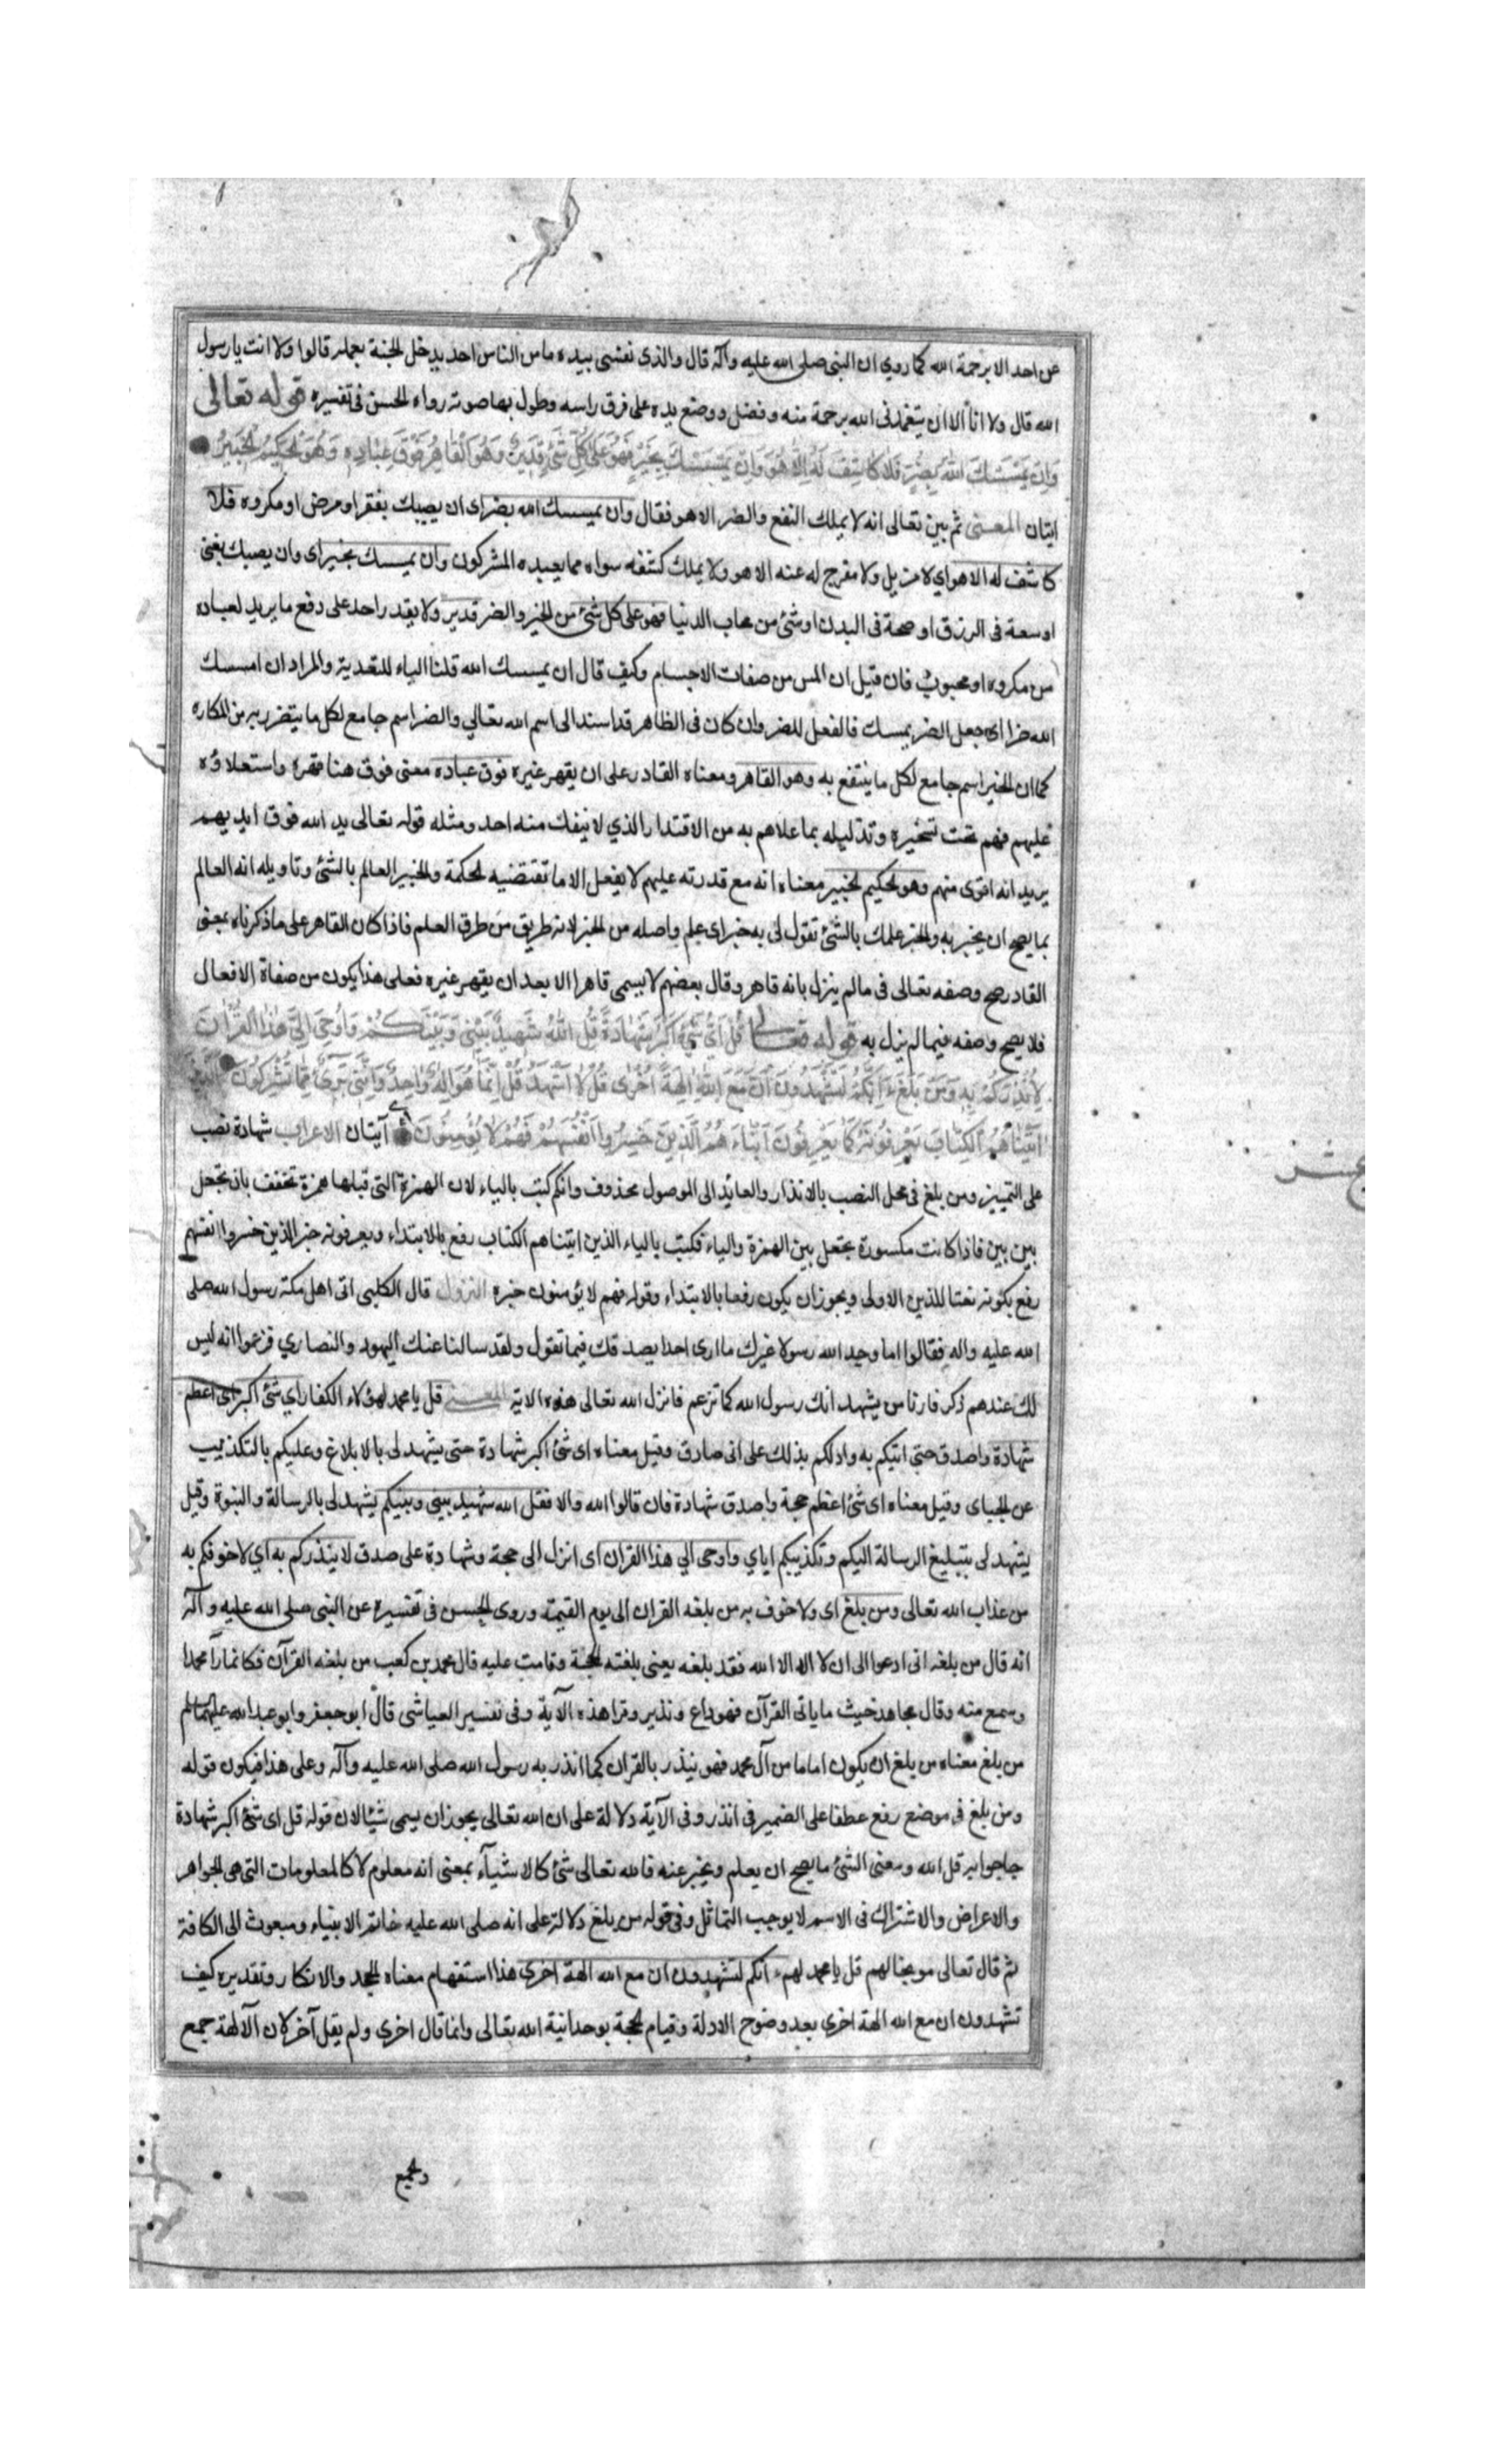 عن احد الا برحمة الله كما روي ان النبى صلى الله عليه وآله قال والذى نفسى بيده ما من الناس احد يدخل الجنة بعمله قالوا ولا انت يا رسول
الله قال ولا انا الا ان يتغمدنى الله برحمة منه وفضل ووضع يده على فرق راسه وطول بها صوته رواه الحسن فى تفسيره قوله تعالى
وَاِنْ يَمْسَسْكَ اللهُ بِضُرٍّ فَلَا كَاشِفَ لَهُ اِلَّا هُوَ وَاِنْ يَمْسَسْكَ بِخَيْرٍ فَهُوَ عَلٰى كُلِّ شَئٍ قَدِيرٌ وَهُوَ الْقَاهِرُ فَوْقَ عِبَادِهِ وَهُوَ الْحَكِيمُ الْخَبِيرُ
ايتان المعنى ثم بين تعالى انه لا يملك النفع والضر الا هو فقال وان يمسسك الله بضر اى ان يصبك بفقر او مرض او مكروه فلا
كاشف له الا هو اي لا مزيل ولا مفرج له عنه الا هو ولا يملك كشفه سواه مما يعبده المشركون وان يمسسك بخير اى وان يصبك بغنى
او سعة فى الرزق او صحة فى البدن او شئ من محاب الدنيا فهو على كل شئ من الخير والضر قدير ولا يقدر احد على دفع ما يريد لعباده
من مكروه او محبوب فان قيل ان المس من صفات الاجسام وكيف قال ان يمسسك الله قلنا الباء للتعدية والمراد ان امسسك
الله ضرا اى جعل الضر يمسك فالفعل للضر وان كان فى الظاهر قد اسند الى اسم الله تعالي والضر اسم جامع لكل ما يتضرر به من المكاره
كما ان الخير اسم جامع لكل ما ينتفع به وهو القاهر ومعناه القادر على ان يقهر غيره فوق عباده معنى فوق هنا قهره واستعلاؤه
عليهم فهم تحت تسخيره وتذليله بما علاهم به من الاقتدار الذي لا ينفك منه احد ومثله قوله تعالى يد الله فوق ايديهم
يريد انه اقوى منهم وهو الحكيم الخبير معناه انه مع قدرته عليهم لا يفعل الا ما تقتضيه الحكمة والخبير العالم بالشئ وتاويله انه العالم
بما يصح ان يخبر به والخبر علمك بالشئ تقول لى به خبر اى علم واصله من الخبر لانه طريق من طرق العلم فاذا كان القاهر على ما ذكرناه بمعنى
القادر صح وصفه تعالى فى ما لم يزل بانه قاهر وقال بعضهم لا يسمى قاهرا الا بعد ان يقهر غيره فعلى هذا يكون من صفاة الافعال
فلا يصح وصفه فيما لم يزل به قوله تعالى قُلْ اَىُّ شَئٍ اَكْبَرُ شَهَادَةً قُلِ اللهُ شَهِيدٌ بَيْنِى وَبَيْنَكُمْ وَاُوحِىَ اِلَىَّ هٰذَا الْقُرْاٰنُ
لِاُنْذِرَكُمْ بِهِ وَمَنْ بَلَغَ ءَاِنَّكُمْ لَتَشْهَدُونَ اَنَّ مَعَ اللهِ اٰلِهَةً اُخْرٰى قُلْ لَا اَشْهَدُ قُلْ اِنَّمَا هُوَ اِلٰهٌ وَاحِدٌ وَاِنَّنِى بَرِىءٌ مِمَّا تُشْرِكُونَ الَّذِينَ
اٰتَيْنَاهُمُ الْكِتَابَ يَعْرِفُونَهُ كَمَا يَعْرِفُونَ اَبْنَاءَهُمُ الَّذِينَ خَسِرُوا اَنْفُسَهُمْ فَهُمْ لَا يُؤْمِنُونَ آيتان الاعراب شهادة نصب
على التمييز ومن بلغ فى محل النصب بالانذار والعايد الى الموصول محذوف وائنكم كتبت بالياء لان الهمزة التى قبلها همزة تخفف بان تجعل
بين بين فاذا كانت مكسورة تجعل بين الهمزة والياء فكتبت بالياء الذين اتيناهم الكتاب رفع بالابتداء ويعرفونه خبر الذين خسروا انفسهم
رفع بكونه نعتا للذين الاولى ويجوز ان يكون رفعا بالابتداء وقوله فهم لا يؤمنون خبره النزول قال الكلبى اتى اهل مكة رسول الله صلى
الله عليه واله فقالوا اما وجد الله رسولا غيرك ما ارى احدا يصدقك فيما تقول ولقد سالنا عنك اليهود والنصاري فزعموا انه ليس
لك عندهم ذكر فارنا من يشهد انك رسول الله كما تزعم فانزل الله تعالى هذه الاية المعنى قل يا محمد لهؤلاء الكفار اي شئ اكبر اى اعظم
شهادة واصدق حتى اتيكم به وادلكم بذلك على انى صادق وقيل معناه اى شئ اكبر شهادة حتى يشهد لى بالابلاغ وعليكم بالتكذيب
عن الجباى وقيل معناه اى شئ اعظم حجة واصدق شهادة فان قالوا الله والا فقل الله شهيد بينى وبينكم يشهد لى بالرسالة والنبوة وقيل
يشهد لى بتبليغ الرسالة اليكم وتكذيبكم اياي واوحى الي هذا القران اى انزل الى حجة وشهادة على صدق لا ينذركم به اي لاخوفكم به
من عذاب الله تعالى ومن بلغ اى ولاخوف به من بلغه القران الى يوم القيمة وروى الحسن فى تفسيره عن النبى صلى الله عليه وآله
انه قال من بلغه انى ادعوا الى ان لا اله الا الله فقد بلغه يعنى بلغته الحجة وقامت عليه قال محمد بن كعب من بلغه القرآن فكانما رآ محمدا
وسمع منه وقال مجاهد حيث ما ياتى القرآن فهو داع ونذير وقرا هذه الآية وفى تفسير العياشى قال ابو جعفر وابو عبد الله عليهما السلم
من بلغ معناه من يلغ ان يكون اماما من آل محمد فهو ينذر بالقران كما انذر به رسول الله صلى الله عليه وآله وعلى هذا فيكون قوله
ومن بلغ فى موضع رفع عطفا على الضمير فى انذر وفى الآية دلالة على ان الله تعالى يجوز ان يسمى شيئا لان قوله قل اى شئ اكبر شهادة
جا جوابه قل الله ومعنى الشئ ما يصح ان يعلم ويخبر عنه فالله تعالى شئ كالاشيآء بمعنى انه معلوم لا كالمعلومات التى هى الجواهر
والاعراض والاشتراك فى الاسم لا يوجب التماثل وفى قوله من بلغ دلالة على انه صلى الله عليه خاتم الانبياء ومبعوث الى الكافة
ثم قال تعالى موبخا لهم قل يا محمد لهم ءانكم لتشهدون ان مع الله الهة اخرى هذا استفهام معناه الجحد والانكار وتقديره كيف
تشهدون ان مع الله الهة اخرى بعد وضوح الادلة وقيام الحجة بوحدانية الله تعالى وانما قال اخرى ولم يقل آخر لان الآلهة جمع
والجمع